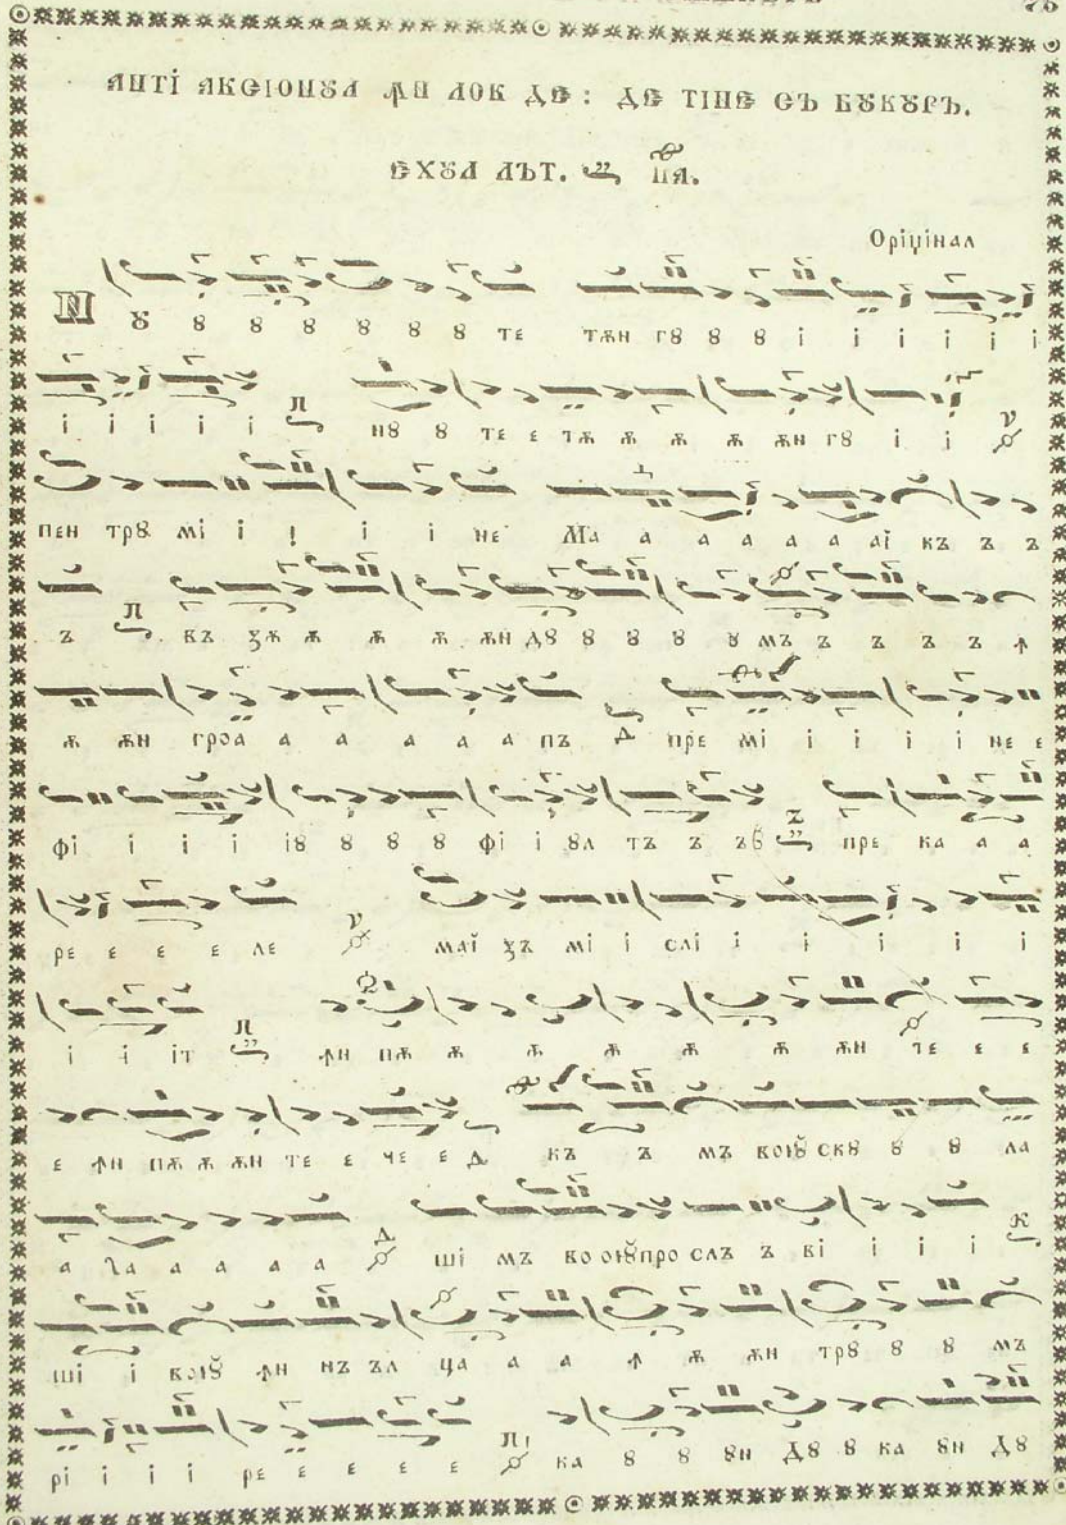 АНТІ АКСІОНꙋЛ ꙞН ЛОК ДЕ : ДЕ ТІНЕ СЪ БꙋКꙋРЪ.
ЕХꙋЛ ЛЪТ. ПА.
Оріџінал
Н ꙋ ꙋ ꙋ ꙋ ꙋ ꙋ ꙋ ꙋ те тѫн гꙋ ꙋ ꙋ і і і і і і
і і і і і Л нꙋ ꙋ те е тѫ ѫ ѫ ѫ ѫн гꙋ і і ν
пен трꙋ мі і і і і не Ма а а а а а аї къ ъ ъ
ъ Л въ ꙁѫ ѫ ѫ ѫ ѫн дꙋ ꙋ ꙋ ꙋ ꙋ мъ ъ ъ ъ ъ ꙟ
ѫ ѫн гроа а а а а а пъ Δ пре мі і і і і не е
фі і і і іꙋ ꙋ ꙋ ꙋ фі і ꙋл тъ ъ ъв пре ка а а
ре е е е ле ν маї ꙁъ мі і слі і і і і і
і і іт Л ꙟн пѫ ѫ ѫ ѫ ѫ ѫ ѫн те е е
е ꙟн пѫ ѫ ѫн те е че е Δ къ ъ мъ воюꙋ скꙋ ꙋ ꙋ ла
а ла а а а а Δ ші мъ во оюꙋ про слъ ъ ві і і і К
ші і воюꙋ ꙟн нъ ъл ца а а ꙟ ѫ ѫн трꙋ ꙋ ꙋ мъ
рі і і і ре е е е е Л ка ꙋ ꙋ ꙋн Дꙋ ꙋ ка ꙋн Дꙋ